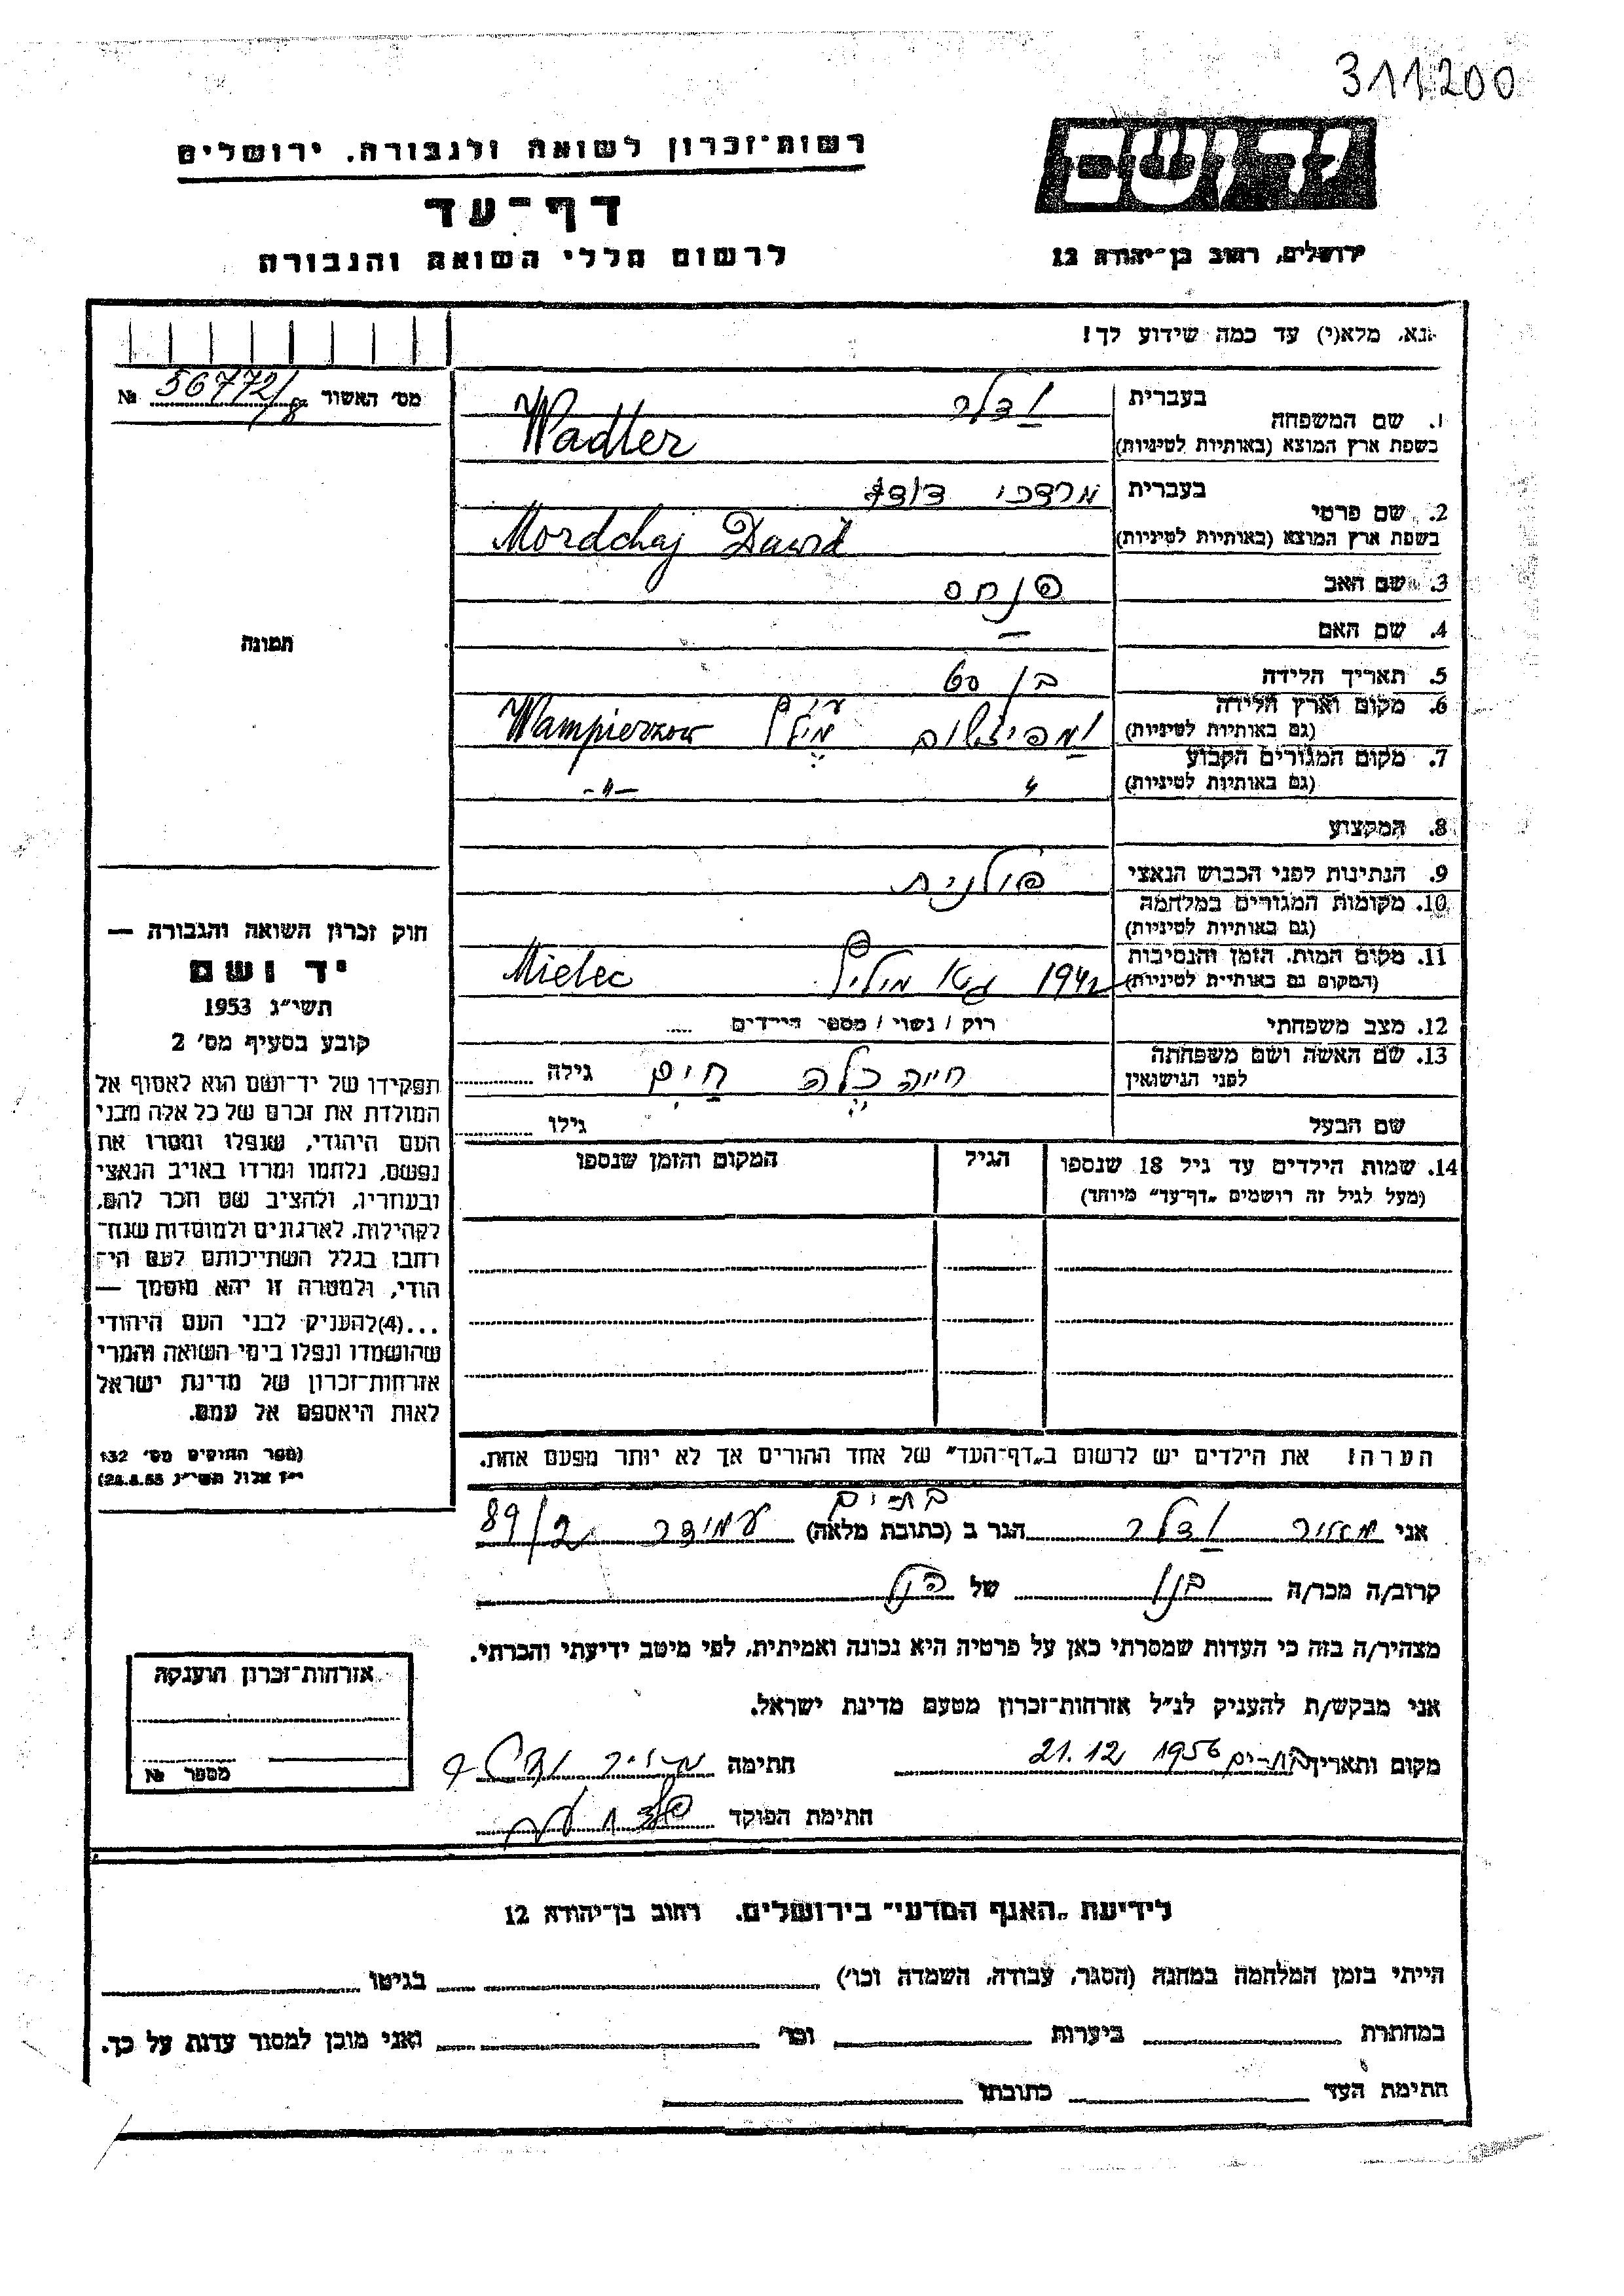 311200
רשות־זכרון לשואה ולגבורה. ירושלים
ד ף ־ ע ד
לרשום חללי השואה והגבורה
יד ושם
ירושלים, רחוב בן־יהודה 12
נא, מלא(י) עד כמה שידוע לך!
מס׳ האשור № 56772/8
תמונה
1. שם המשפחה
בעברית ודלר
בשפת ארץ המוצא (באותיות לטיניות) Wadler
2. שם פרטי
בעברית מרדכי דוד
בשפת ארץ המוצא (באותיות לטיניות) Mordchaj Dawid
3. שם האב פנחס
4. שם האם —
5. תאריך הלידה בן 60
6. מקום וארץ הלידה
(גם באותיות לטיניות) Wampierzow
7. מקום המגורים הקבוע
(גם באותיות לטיניות) " -"-
8. המקצוע
9. הנתינות לפני הכבוש הנאצי פולנית
10. מקומות המגורים במלחמה
(גם באותיות לטיניות)
11. מקום המות, הזמן והנסיבות
(המקום גם באותיות לטיניות) 1942 Mielec
12. מצב משפחתי רוק / נשוי / מספר הילדים
13. שם האשה ושם משפחתה
לפני הנישואין חיה גילה
שם הבעל גילו
14. שמות הילדים עד גיל 18 שנספו הגיל המקום והזמן שנספו
(מעל לגיל זה רושמים „דף־עד” מיוחד)
הערה! את הילדים יש לרשום ב„דף־העד” של אחד ההורים אך לא יותר מפעם אחת.
חוק זכרון השואה והגבורה —
יד ושם
תשי״ג 1953
קובע בסעיף מס׳ 2
תפקידו של יד־ושם הוא לאסוף אל
המולדת את זכרם של כל אלה מבני
העם היהודי, שנפלו ומסרו את
נפשם, נלחמו ומרדו באויב הנאצי
ובעוזריו, ולהציב שם וזכר להם,
לקהילות, לארגונים ולמוסדות שנח־
רבו בגלל השתייכותם לעם הי־
הודי, ולמטרה זו יהא מוסמך —
...(4)להעניק לבני העם היהודי
שהושמדו ונפלו בימי השואה והמרי
אזרחות־זכרון של מדינת ישראל
לאות היאספם אל עמם.
(ספר החוקים מס׳ 132
י״ז אלול תשי״ג 28.8.53)
בת ים
אני מאיר ודלר הגר ב (כתובת מלאה) עמידר 89/2
קרוב/ה מכר/ה בנו של הנ״ל
מצהיר/ה בזה כי העדות שמסרתי כאן על פרטיה היא נכונה ואמיתית, לפי מיטב ידיעתי והכרתי.
אני מבקש/ת להעניק לנ״ל אזרחות־זכרון מטעם מדינת ישראל.
מקום ותאריך בת־ים 21.12.1956 חתימה מאיר ודלר
חתימת הפוקד
אזרחות־זכרון הוענקה
מספר №
לידיעת „האגף המדעי” בירושלים. רחוב בן־יהודה 12
הייתי בזמן המלחמה במחנה (הסגר, עבודה, השמדה וכו׳) בגיטו
במחתרת ביערות וכו׳ ואני מוכן למסור עדות על כך.
חתימת העד כתובתו